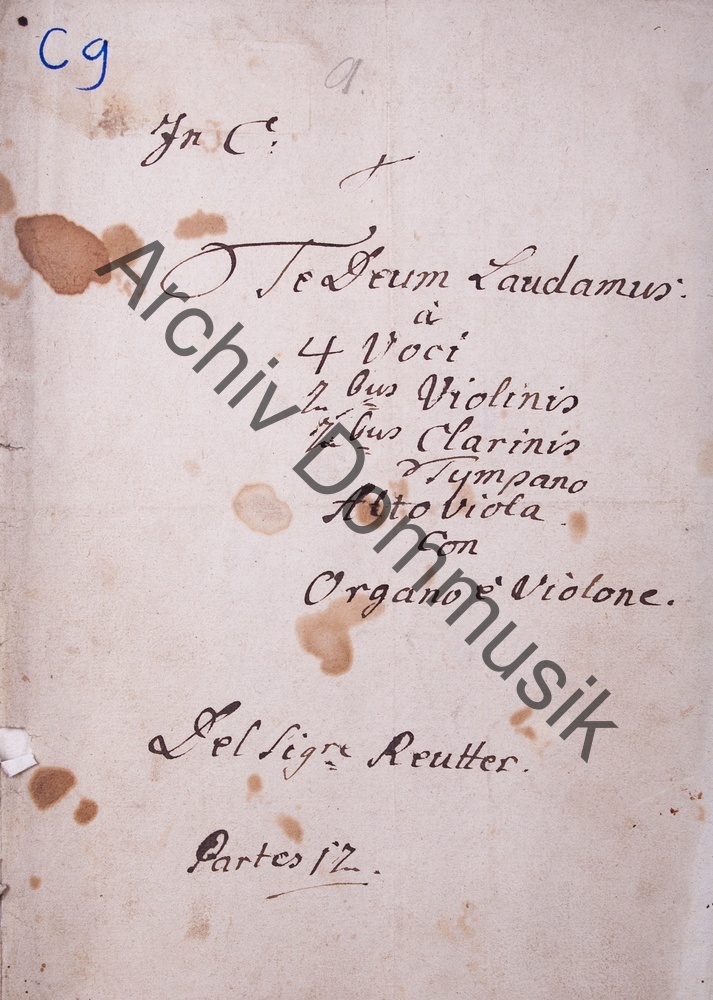 C9
9.
In C.
Te Deum Laudamus.
à
4 Voci
2bus Violinis
2bus Clarinis
Tympano
Alto viola
Con
Organo è Violone.
Del Sigre Reutter.
Partes 12.
Archiv Dommusik